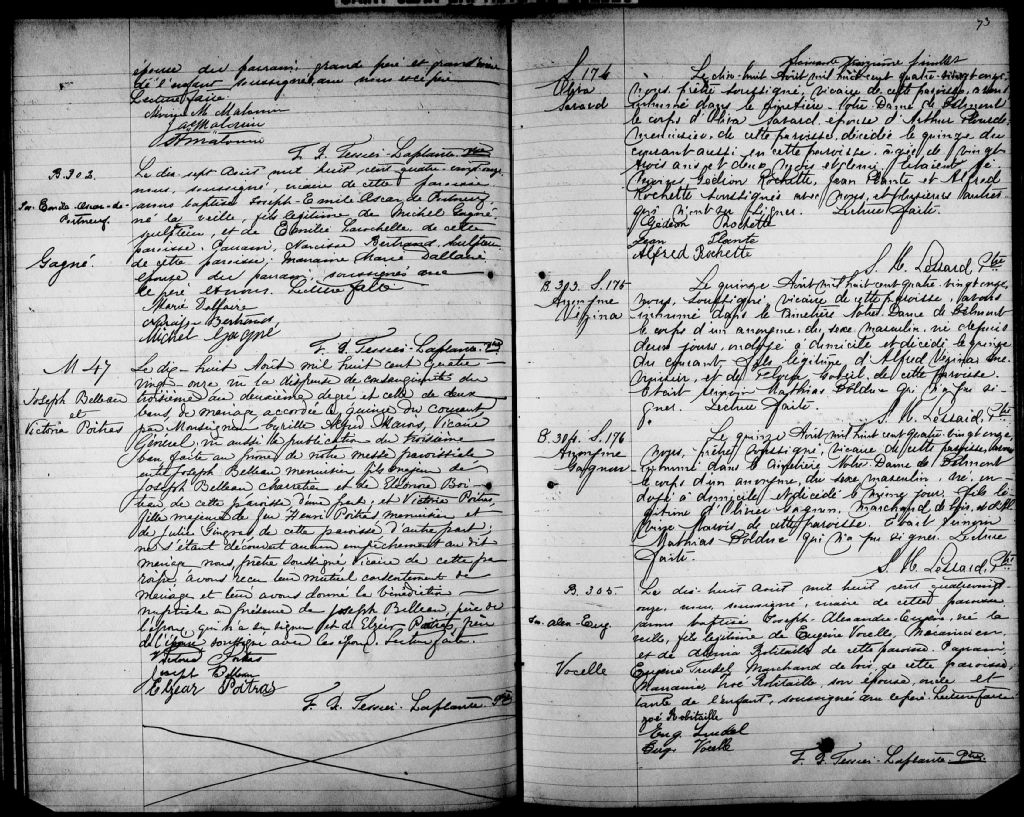 épouse du parrain, grand père et grand'mère
de l'enfant soussignés avec nous
Lecture faite
Malouin
Malouin
Malouin
F. G. Tessier-Laplante. Ptre
B. 302.
Jos. Emile-Oscar-de-
Portneuf
Gagné.
Le dix-sept Août mil huit cent quatre-vingt onze
nous, soussigné, vicaire de cette paroisse
avons baptisé Joseph-Emile Oscar de Portneuf,
né la veille, fils légitime de Michel Gagné,
sculpteur, et de Emilie Larochelle de cette
paroisse. Parrain, Narcisse Bertrand, sculpteur
de cette paroisse; marraine Marie Dallaire
épouse du parrain, soussignés avec
le père et nous. Lecture faite
Marie Dallaire
Narcisse Bertrand
Michel Gagné
F. G. Tessier-Laplante. Ptre
M 47
Joseph Belleau
et
Victoria Poitras
Le dix-huit Août mil huit cent quatre
vingt onze vu la dispense de consanguinité du
troisième au deuxième degré et celle de deux
bans de mariage accordée le quinze du courant
par Monseigneur Cyrille Alfred Marois, Vicaire
Général, vu aussi la publication du troisième
ban faite au prône de notre messe paroissiale
entre Joseph Belleau menuisier fils majeur de
Joseph Belleau charretier et de Eléonore
de cette paroisse d'une part; et Victoria Poitras
fille majeure de feu Henri Poitras menuisier et
de Julie Gingras de cette paroisse d'autre part;
ne s'étant découvert aucun empêchement au dit
mariage nous, prêtre soussigné vicaire de cette pa
roisse, avons reçu leur mutuel consentement de
mariage et leur avons donné la bénédiction
nuptiale en présence de Joseph Belleau, père de
l'époux qui n'a su signer et de Elzéar Poitras, frère
de l'épouse soussigné avec les époux. Lecture faite.
Victoria Poitras
Joseph Belleau
Elzéar Poitras
F. G. Tessier-Laplante Ptre
73
Soixante treizième feuillet
S. 174
Oliva
Savard
Le dix-huit Août mil huit cent quatre-vingt onze,
nous, prêtre soussigné, vicaire de cette paroisse, avons
inhumé dans le cimetière Notre Dame de Belmont
le corps d'Oliva Savard, épouse d'Arthur Plourde
menuisier de cette paroisse, décédée le quinze du
courant aussi en cette paroisse, agée de vingt
trois ans et deux mois et demi. Etaient té
moins Gédéon Rochette, Jean Plante et Alfred
Rochette soussignés avec nous, et plusieurs autres
qui n'ont su signer. Lecture faite.
Gédéon Rochette
Jean Plante
Alfred Rochette
S. M. Lessard, Ptre
B. 303. S. 175
Anonyme
Vézina
Le quinze Août mil huit cent quatre vingt onze,
nous, soussigné, vicaire de cette paroisse, avons
inhumé dans le Cimetière Notre Dame de Belmont
le corps d'un anonyme, du sexe masculin, né depuis
deux jours, ondoyé à domicile et décédé le quinze
du courant fils légitime d'Alfred Vézina me
nuisier, et de de cette paroisse.
Etait témoin Mathias Bolduc qui n'a pu si
gner. Lecture faite.
S. M. Lessard, Ptre
B. 304. S. 176
Anonyme
Gagnon
Le quinze Août mil huit cent quatre vingt onze,
nous, prêtre soussigné, vicaire de cette paroisse, avons
inhumé dans le Cimetière Notre Dame de Belmont
le corps d'un anonyme, du sexe masculin, né, on
doyé à domicile et décédé le même jour, fils lé
gitime d'Olivier Gagnon, marchand de bois, et d'
Marois de cette paroisse. Etait témoin
Mathias Bolduc qui n'a pu signer. Lecture
faite.
S. M. Lessard, Ptre
B. 305.
Jos. Alex-Eug.
Vocelle
Le dix-huit Août mil huit cent quatre vingt
onze, nous, soussigné, vicaire de cette paroisse
avons baptisé Joseph-Alexandre-Eugène, né la
veille, fils légitime de Eugène Vocelle,
et de Robitaille de cette paroisse. Parrain,
Eugène Trudel, Marchand de bois, de cette paroisse;
Marraine, Zoé Robitaille, son épouse, oncle et
tante de l'enfant, soussignés avec le père. Lecture faite
Zoé Robitaille
Eug Trudel
Eug. Vocelle
F. G. Tessier-Laplante Ptre